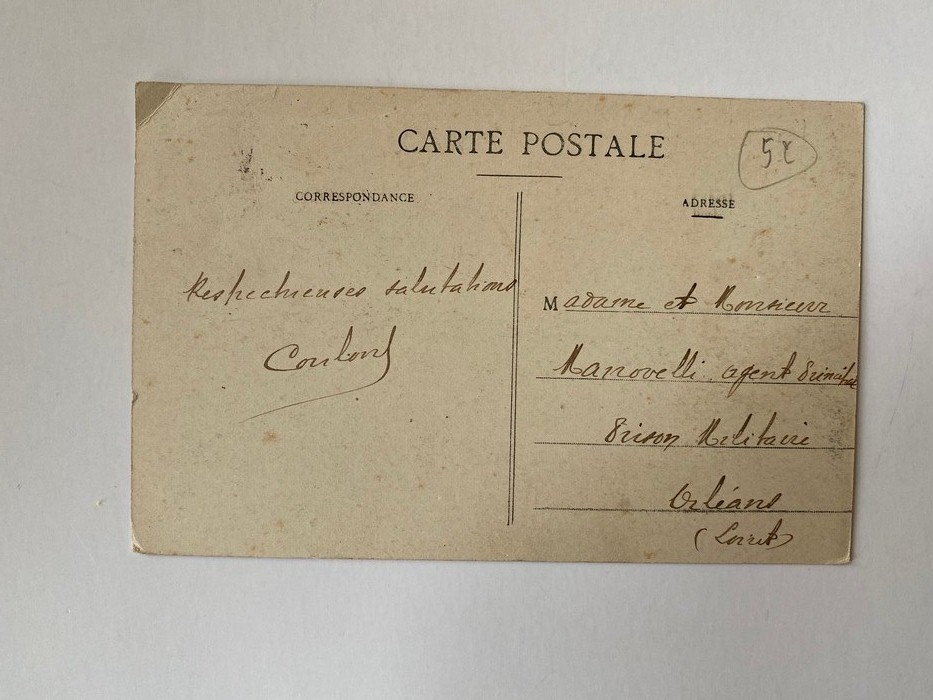 CARTE POSTALE
CORRESPONDANCE
ADRESSE
Respectueuses salutations
Madame et Monsieur
Manovelli agent Principal
Prison Militaire
Orléans
(Loiret)